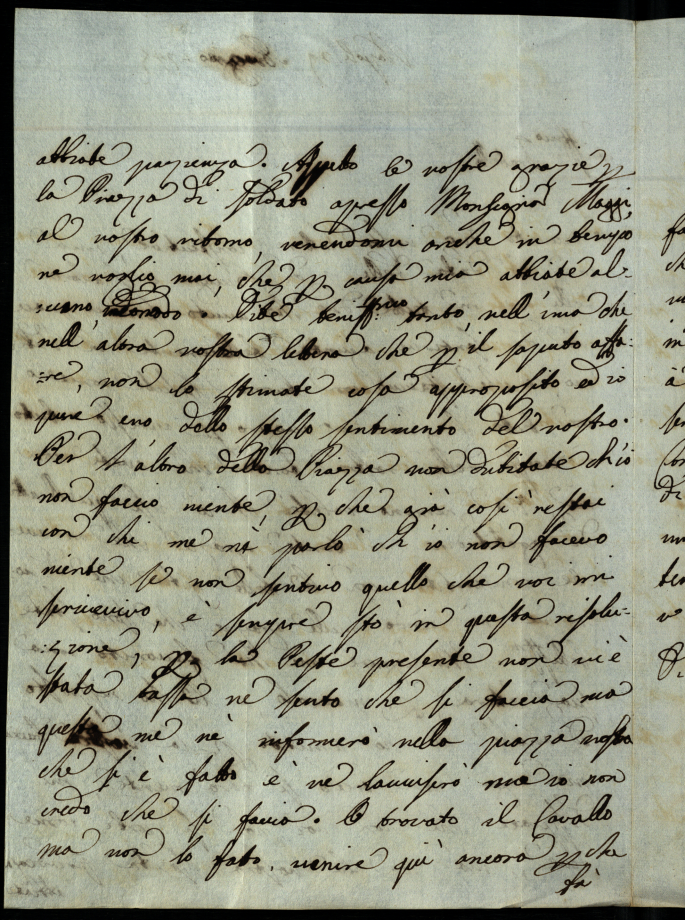 abbiate pazienza. Aspetto le vostre grazie p
la Piazza di soldato appresso Monsignor Maggi,
al vostro ritorno, venendomi anche in tempo
ne voglio mai, che p causa mia abbiate al-
cuno incomodo. Dite beniss: tanto nell'una che
nell'altra vostra lettera che p il saputo affa-
re, non lo stimate cosa approposito ed io
pure ero dello stesso sentimento del vostro.
Per l'altro della Piazza non dubitate ch'io
non faccio niente, p che già così restai
con chi me nè parlò ch'io non facevo
niente se non sentivo quello che voi mi
scrivevivo, è sempre stò in questa risolu-
zione, p la Peste presente non vi è
stata tassa ne sento che si faccia ma
questa me nè informerò nella piazza vostra
che si è fatto è ve l'avviserò ma io non
credo che si faccia. O trovato il Cavallo
ma non lo fatto venire quì ancora p che
fà